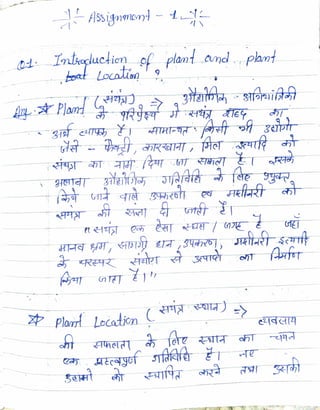 Assignment - 1
Q1. Introduction of plant and plant
Location ?
Ans. Plant (संयंत्र) => औद्योगिक अभियांत्रिकी
के परिप्रेक्ष्य में संयंत्र शब्द का
अर्थ व्यापक है। सामान्यतः किसी भी उद्योग
जैसे - फैक्ट्री, कारखाना, मिल इत्यादि को
संयंत्र का नाम दिया जा सकता है। इसके
अलावा औद्योगिक गतिविधि के लिए प्रयुक्त
किये जाने वाले उपकरणो एव मशीनरी को
संयंत्र की संज्ञा दी जाती है।
"संयंत्र एक ऐसा स्थान / जगह है जहाँ
मानव श्रम, सामग्री, धन, उपकरण, मशीनरी इत्यादि
के परस्पर संयोग से उत्पादो का निर्माण
किया जाता है।"
Plant Location (संयंत्र स्थान) =>
व्यवसाय
की सफलता के लिए स्थान का चयन
एक महत्वपूर्ण गतिविधि है। नए
उद्यमो को स्थापित करने तथा उसकी